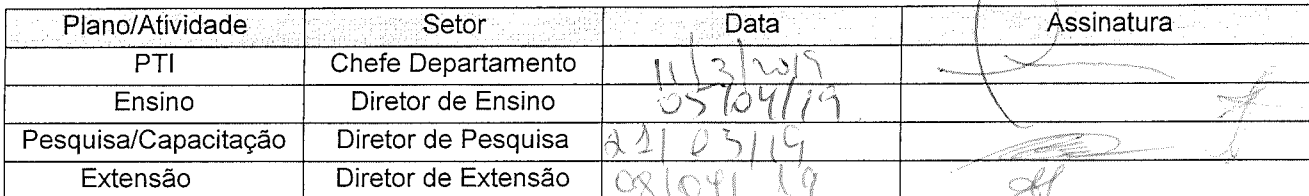 Plano/Atividade Setor Data Assinatura
PTI Chefe Departamento 11/3/2019
Ensino Diretor de Ensino 05/04/19
Pesquisa/Capacitação Diretor de Pesquisa 21/03/19
Extensão Diretor de Extensão 08/04/19